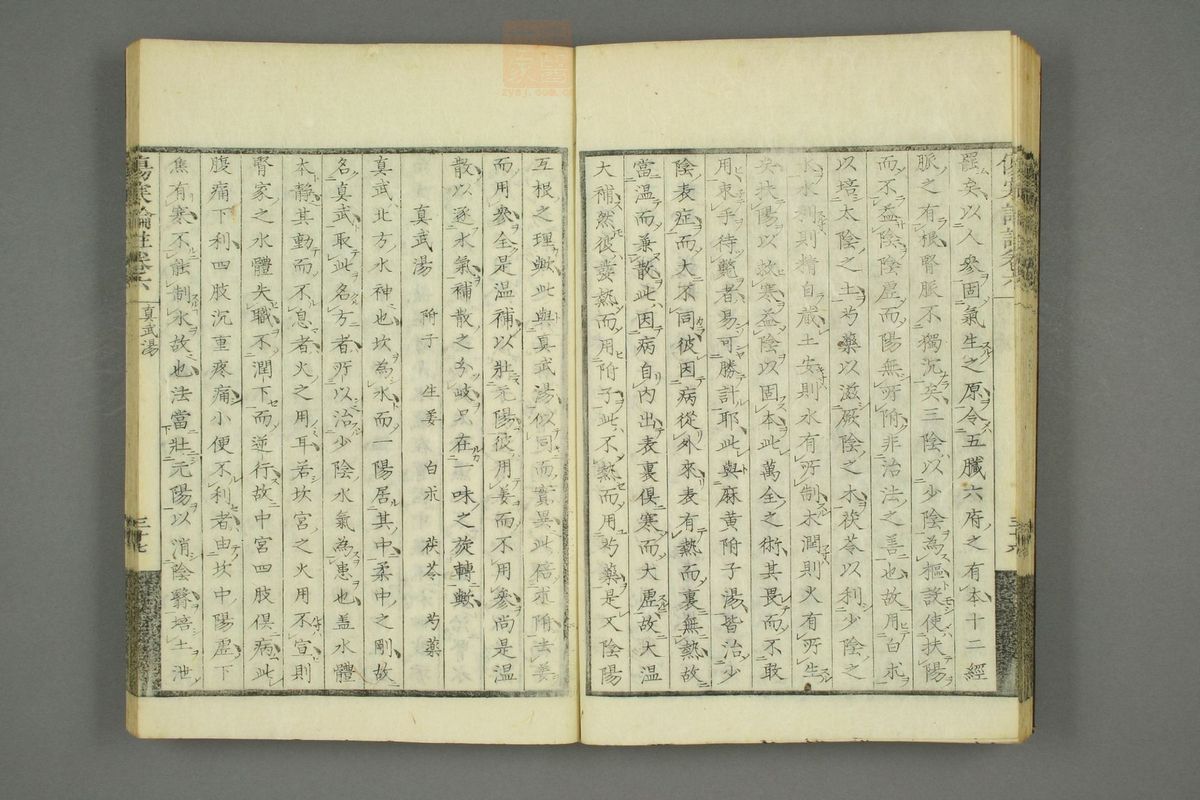 傷寒論註卷六 三十六
矣以人參固氣生之原令五臟六府之有本十二經
脈之有根腎脈不獨沉矣三陰以少陰為樞設使扶陽
而不益陰陰虛而陽無所附非治法之善也故用白朮
以培太陰之土芍藥以滋厥陰之木茯苓以利少陰之
水水利則精自藏土安則水有所制木潤則火有所生
矣扶陽以救寒益陰以固本此萬全之術其畏而不敢
用束手待斃者易可勝計耶此與麻黃附子湯皆治少
陰表症而大不同彼因病從外來表有熱而裏無熱故
當温而兼散此因病自内出表裏俱寒而大虛故大温
大補然彼發熱而用附子此不熱而用芍藥是又陰陽
互根之理歟此與真武湯似同而實異此倍朮附去姜
而用參全是温補以壯元陽彼用姜而不用參尚是温
散以逐水氣補散之分岐只在一味之旋轉歟
真武湯 附子 生姜 白朮 茯苓 芍藥
真武北方水神也坎為水而一陽居其中柔中之剛故
名真武取此名方者所以治少陰水氣為患也盖水體
本靜其動而不息者火之用耳若坎宮之火用不宣則
腎家之水體失職不潤下而逆行故中宮四肢俱病此
腹痛下利四肢沉重疼痛小便不利者由坎中陽虛下
焦有寒不能制水故也法當壯元陽以消陰翳培土泄
傷寒論註卷六 真武湯 三十七